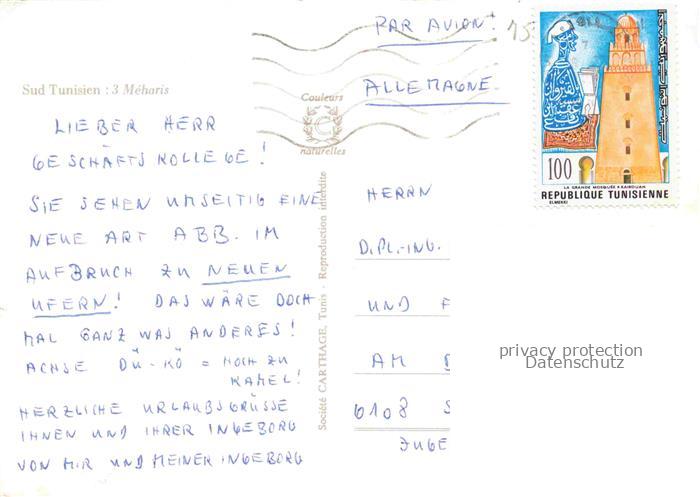 PAR AVION!
ALLEMAGNE
Sud Tunisien : 3 Méharis
Couleurs
naturelles
LIEBER HERR
GESCHÄFTSKOLLEGE!
SIE SEHEN UMSEITIG EINE
NEUE ART ABB. IM
AUFBRUCH ZU NEUEN
UFERN! DAS WÄRE DOCH
MAL GANZ WAS ANDERES!
ACHSE DÜ-KÖ = NOCH ZU
KAMEL!
HERZLICHE URLAUBSGRÜSSE
IHNEN UND IHRER INGEBORG
VON MIR UND MEINER INGEBORG
Société CARTHAGE, Tunis - Reproduction interdite
HERRN
DIPL.-ING.
UND F
AM
6108 S
JUGE
100
LA GRANDE MOSQUÉE KAIROUAN
REPUBLIQUE TUNISIENNE
ELMEKKI
الجمهورية التونسية
privacy protection
Datenschutz